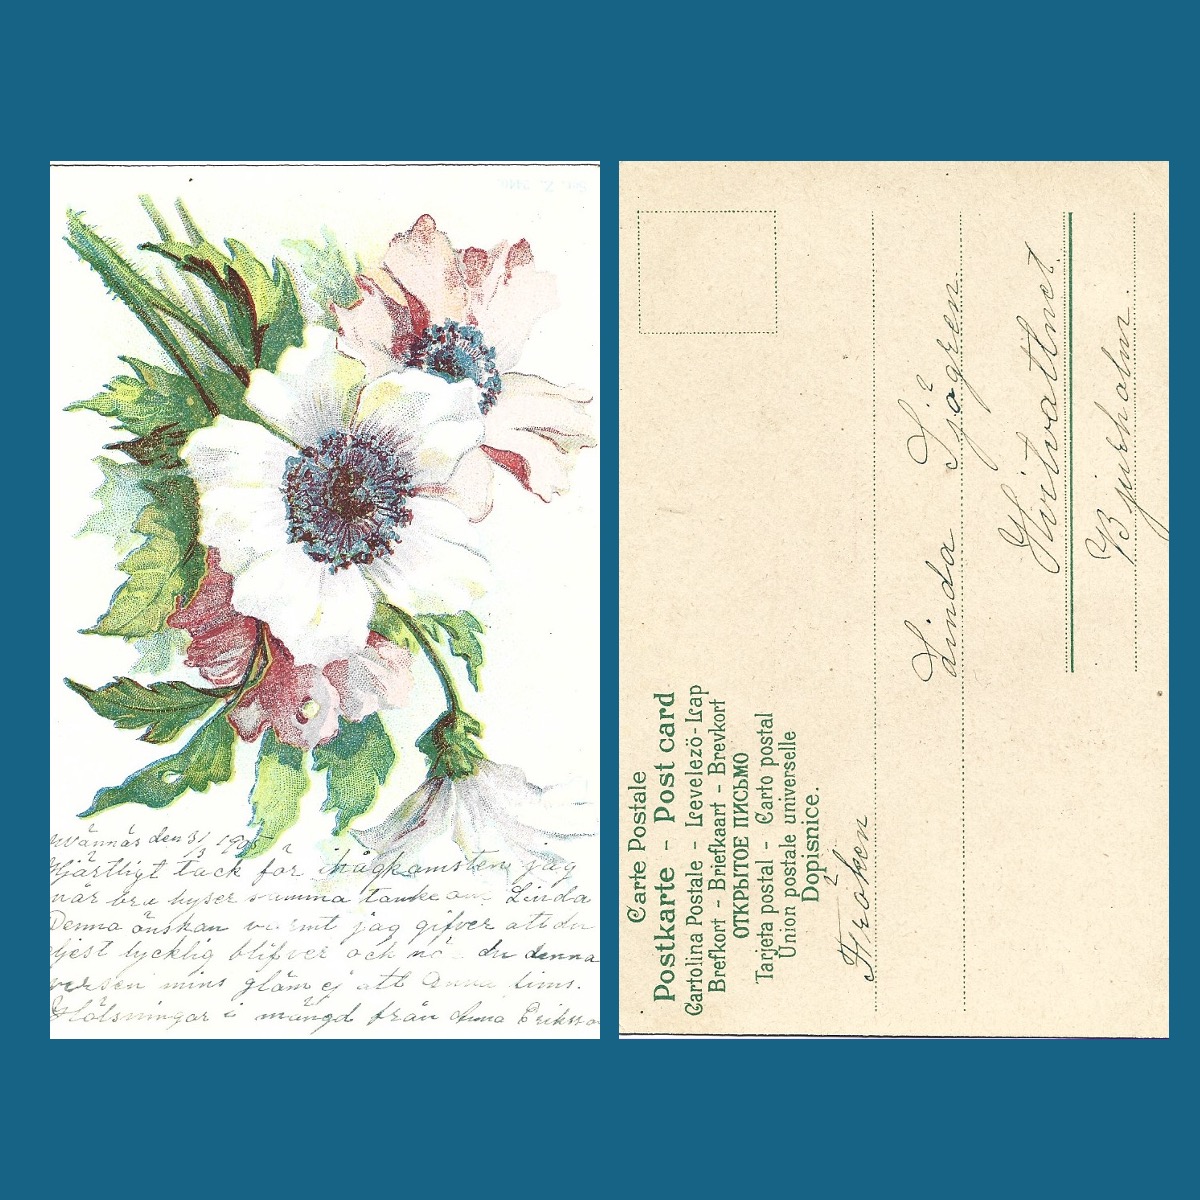 Vännäs den 31/3 1905
Hjärtligt tack för ihågkomsten, jag
när bru hyser samma tanke om Linda
Denna önskan varmt jag gifver att du
städjest lycklig blifver och nä du denna
versen mins glöm ej att Anna fins.
Hälsningar i mängd från Anna Eriksson
Carte Postale
Postkarte - Post card
Cartolina Postale - Levelezö-Lap
Brefkort - Briefkaart - Brevkort
ОТКРЫТОЕ ПИСЬМО
Tarjeta postal - Carto postal
Union postale universelle
Dopisnice.
Fröken
Linda Sjögren
Hvitvattnet.
Bjurholm.